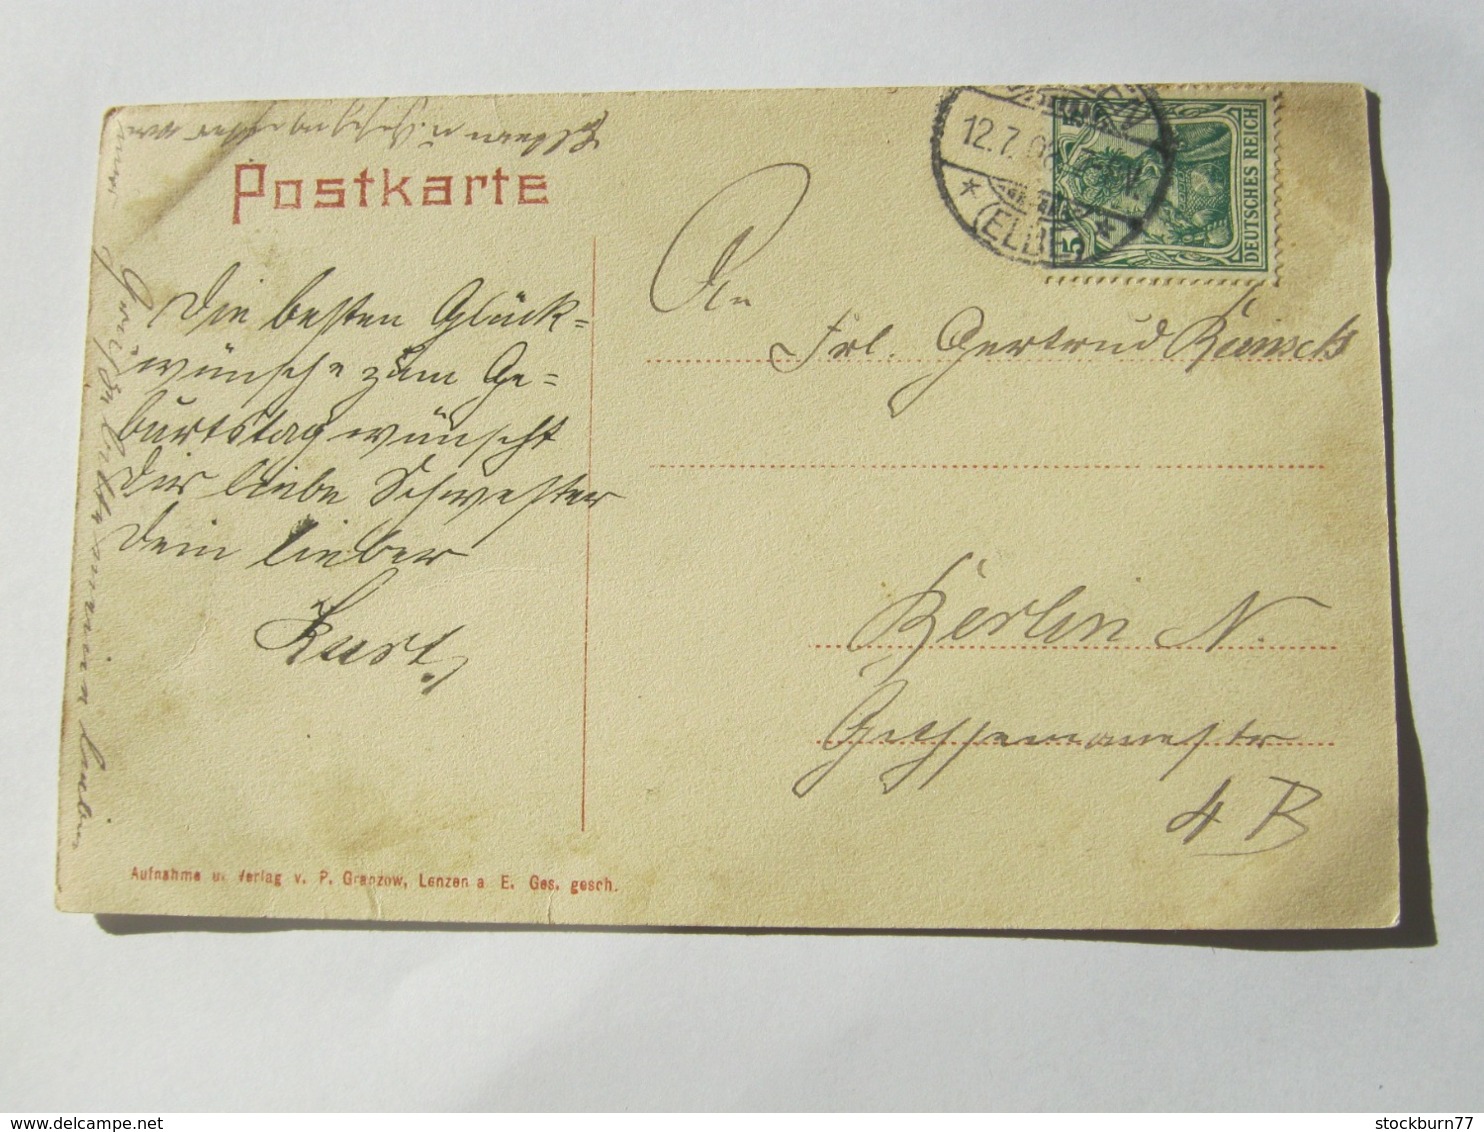 Postkarte
Die besten Glück-
wünsche zum Ge-
burtstag wünscht
Dir liebe Schwester
Dein lieber
Kurt.
An
Frl. Gertrud
Berlin N.
Gethsemanestr
4 B
12.7.
(ELBE)
5
DEUTSCHES REICH
Aufnahme u. Verlag v. P. Granzow, Lenzen a E. Ges. gesch.
stockburn77